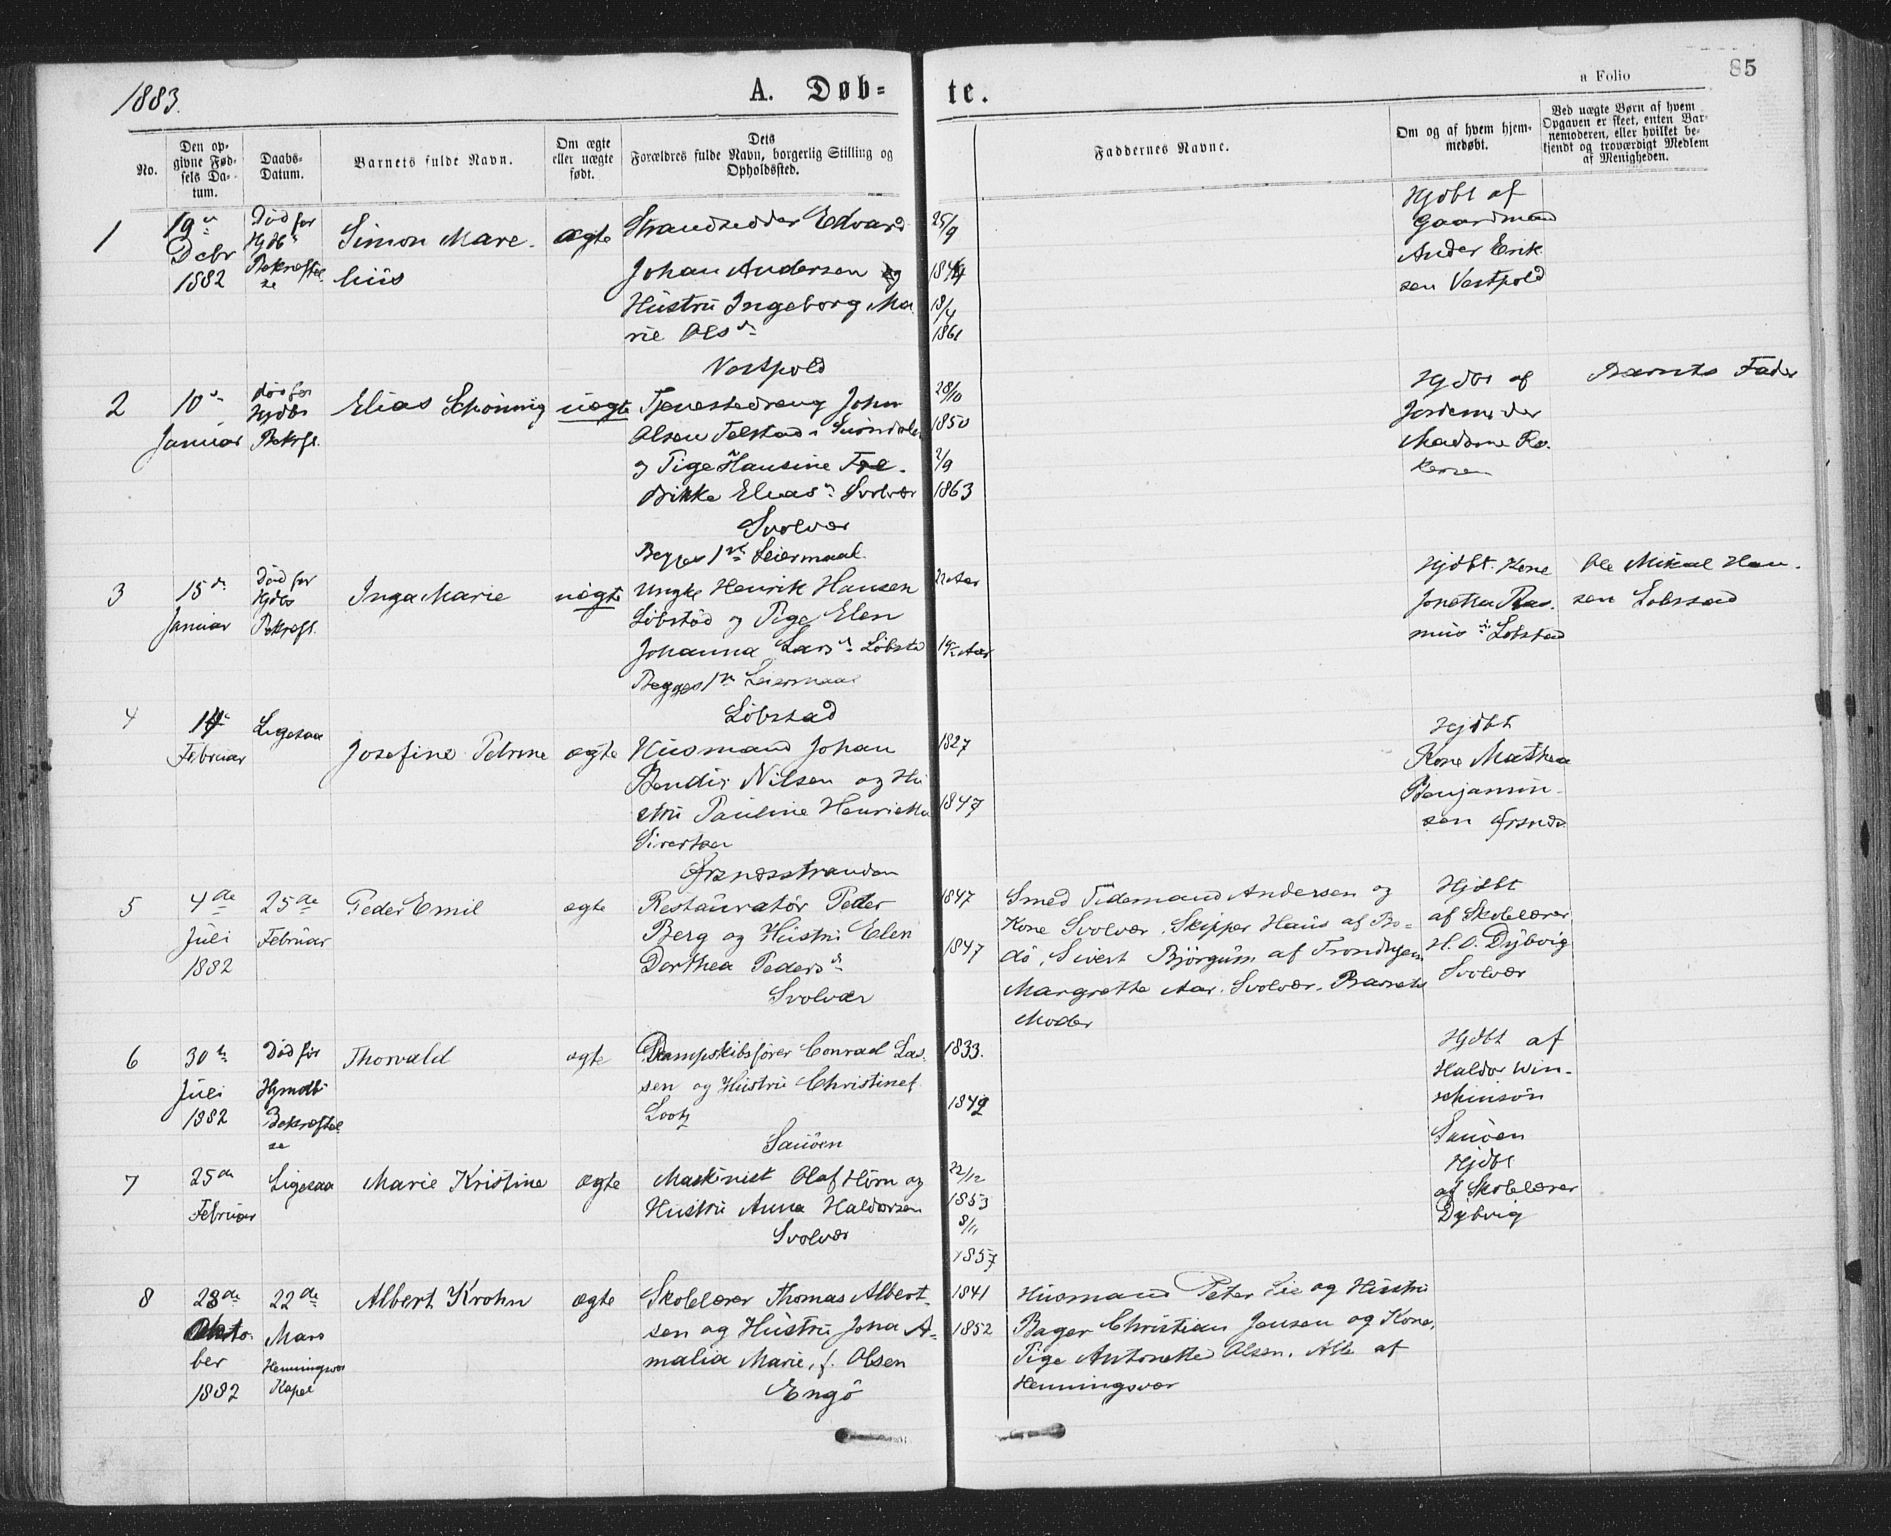 1883.
A. Døb-te.
a Folio 85
No.
Den op-
givne Fød-
sels Da-
tum.
Daabs-
Datum.
Barnets fulde Navn.
Om ægte
eller uægte
født.
Dets
Forældres fulde Navn, borgerlig Stilling og
Opholdssted.
Faddernes Navne.
Om og af hvem hjem-
medøbt.
Ved uægte Børn af hvem
Opgaven er skeet, enten Bar-
nemoderen, eller hvilket be-
kjendt og troværdigt Medlem
af Menigheden.
1
19de
Debr
1882
Död for
Hjdbs
Bekræftel
se
Simon Mare-
liüs
ægte
Strandsedder Edvard
Johan Andersen og
Hüstrü Ingeborg Ma
rie Olsdr
Vestpold
25/9
1844
18/4
1861
Hjdbt af
Gaardmand
Ander Erik
sen Vestpold
2
10de
Januar
död for
Hjdbs
Bekrft.
Elias Schönnig
uægte
Tjenestedreng John
Olsen Telstad i Surndalen
og Pige Hansine Fre-
drikke Eliasdr Svolvær
Svolvær
Begges 1ste Leiermaal
28/10
1850
2/9
1863
Hjdbt af
Jordemoder
Madame
Barnets Fader
3
15de
Januar
Död for
Hjdbs
Bekræft.
Inga Marie
uægte
Ungkr Henrik Hansen
Löbstöd og Pige Elen
Johanna Larsdr Löbsta
Begges 1ste Leiermaal
Löbstad
22 Aar
Aar
Hjdbt. Kone
Jonetha Ras-
müs Lobstad
Ole Mikal Han-
sen Lobstad
4
14de
Februar
Ligesaa
Josefine Petrine
ægte
Hüsmand Johan
Bendix Nilsen og Hü
strü Pauline Henriette
Sivertsen
Örsnesstranden
1827
1847
Hjdbt
Kone Mathea
Benjamin-
sen Örsnes
5
4de
Juli
1882
25de
Februar
Peder Emil
ægte
Restauratør Peder
Berg og Hüstrü Elen
Dorthea Pedersdr
Svolvær
1847
1847
Smed Tidemand Andersen og
Kone Svolvær, Skipper Haüs af Bo-
dö, Sivert Björgüm af Trondhjem
Margrethe Aar. Svolvær. Barnets
Moder
Hjdbt
af Skolelærer
H. O. Dybvig
Svolvær
6
30te
Juli
1882
Död før
Hjmdb
Bekræftel
se
Thorvald
ægte
Dampskibsfører Conrad Las-
sen og Hüstrü Christine f.
Lootz
Sanöen
1833.
1849
Hjdbt af
Haldor Win-
Sanöen
7
25de
Februar
Ligesaa
Marie Kristine
ægte
Maskinist Olaf Hörn og
Hüstrü Anna Haldorsen
Svolvær
22/12
1853
8/11
1857
Hjdbt
af Skolelærer
Dybvig
8
28de
Okto-
ber
1882
22de
Mars
Henningsvær
Kapel
Albert Krohn
ægte
Skolelærer Thomas Albert-
sen og Hüstrü Jona A-
malia Marie, f. Olsen
Engö
1841
1852
Hüsmand Peter Lie og Hüstrü
Bager Christian Jensen og Kone,
Pige Antonette Olsen. Alle af
Henningsvær